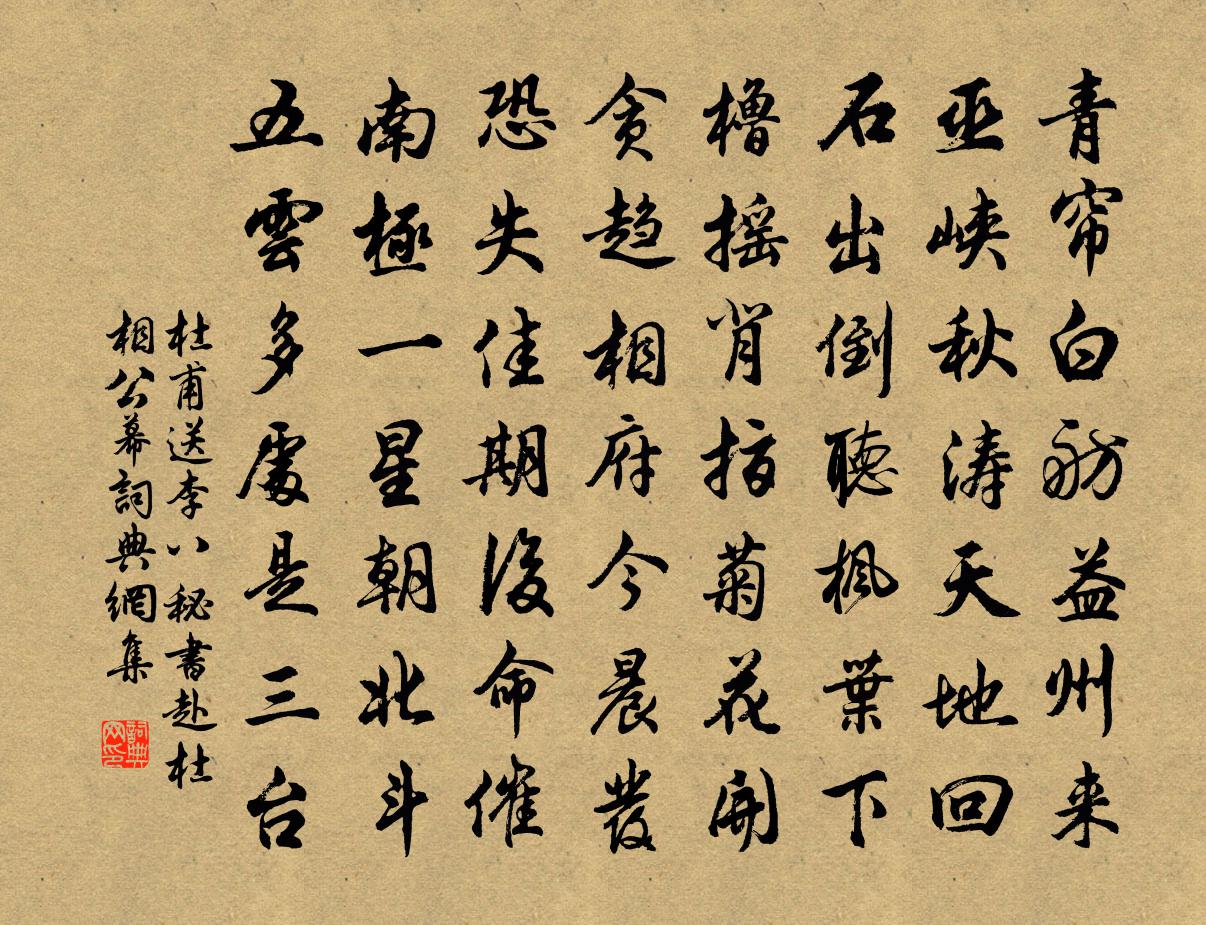 青帘白舫益州来
巫峡秋涛天地回
石出倒聽楓葉下
櫓摇背指菊花開
贪趋相府今晨發
恐失佳期後命催
南極一星朝北斗
五雲多處是三台
杜甫送李八秘書赴杜
相公幕詞典網集
詞典
网印